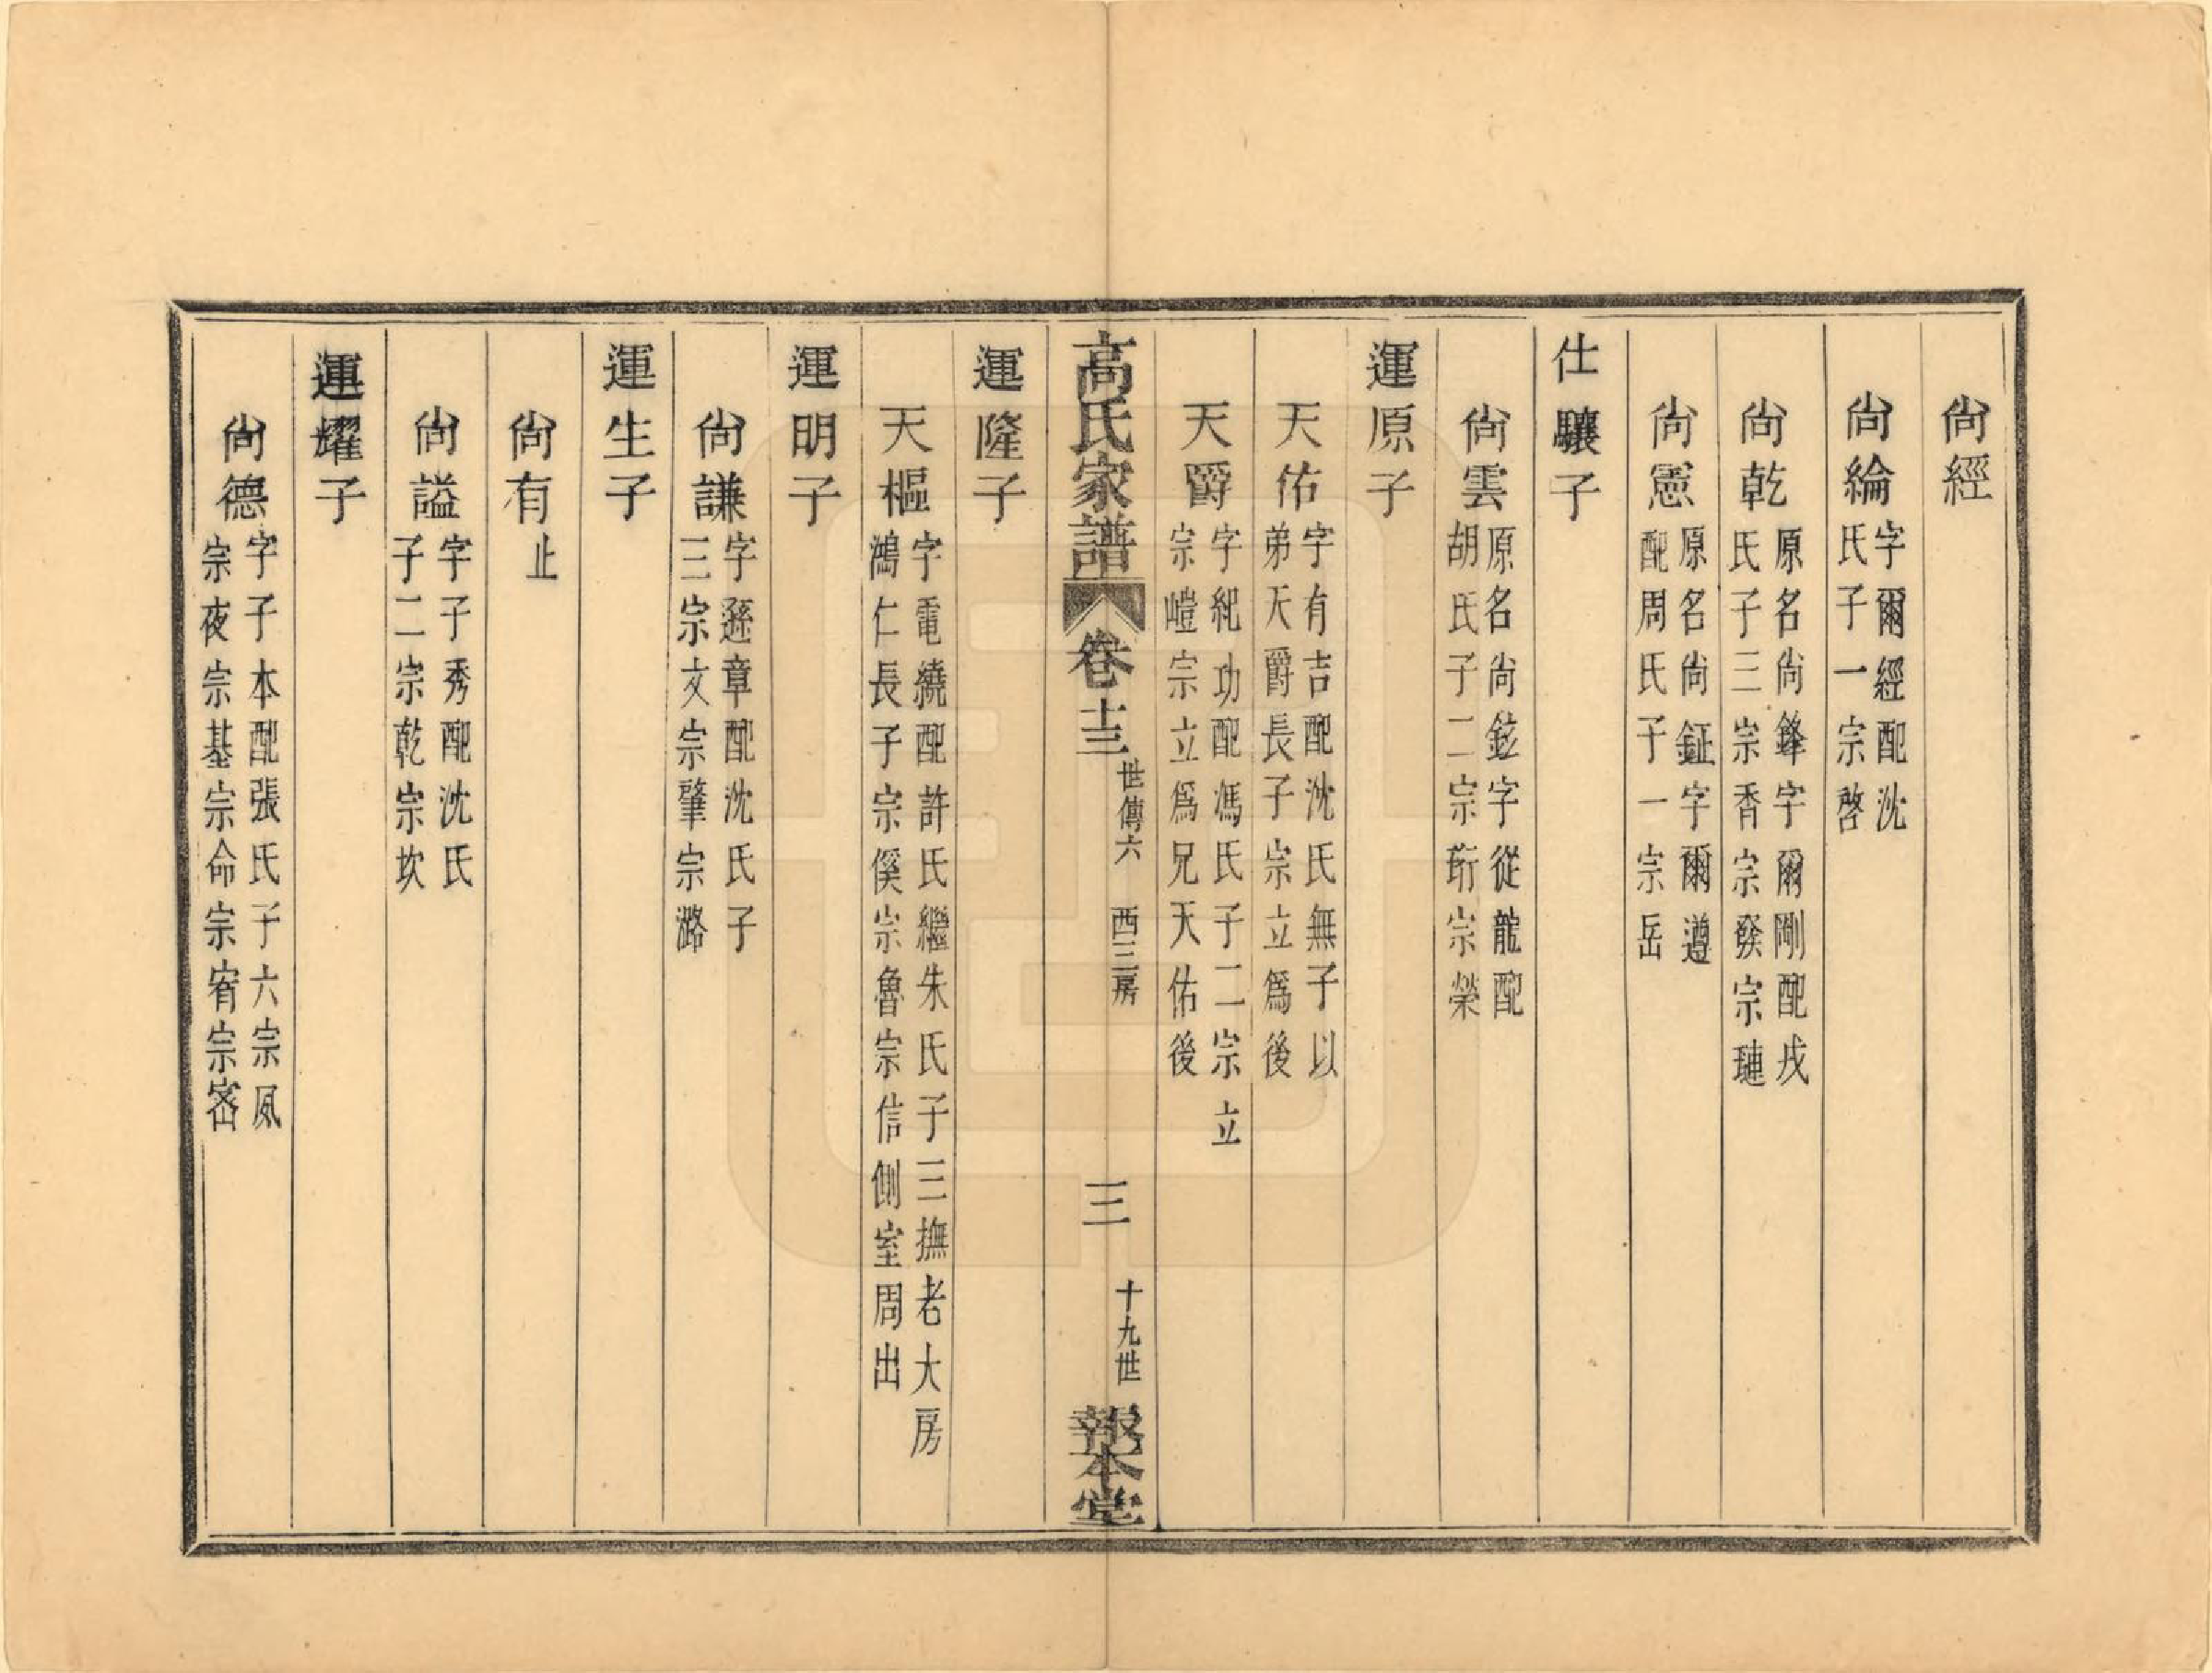 尙經
尙綸
字爾經配沈
氏子一宗啓
尙乾
原名尙鋒字爾剛配戎
氏子三宗香宗發宗璉
尙憲
原名尙鉦字爾遵
配周氏子一宗岳
仕驤子
尙雲
原名尙鉉字從龍配
胡氏子二宗珩宗榮
運原子
天佑
字有吉配沈氏無子以
弟天爵長子宗立爲後
天爵
字紀功配馮氏子二宗立
宗嵦宗立爲兄天佑後
高氏家譜
卷十三
世傳六
西三房
三
十九世
報本堂
運隆子
天樞
字電繞配許氏繼朱氏子三撫老大房
鴻仁長子宗傒宗魯宗信側室周出
運明子
尙謙
字遜章配沈氏子
三宗文宗肇宗潞
運生子
尙有
止
尙謚
字子秀配沈氏
子二宗乾宗坎
運耀子
尙德
字子本配張氏子六宗夙
宗夜宗基宗命宗宥宗密